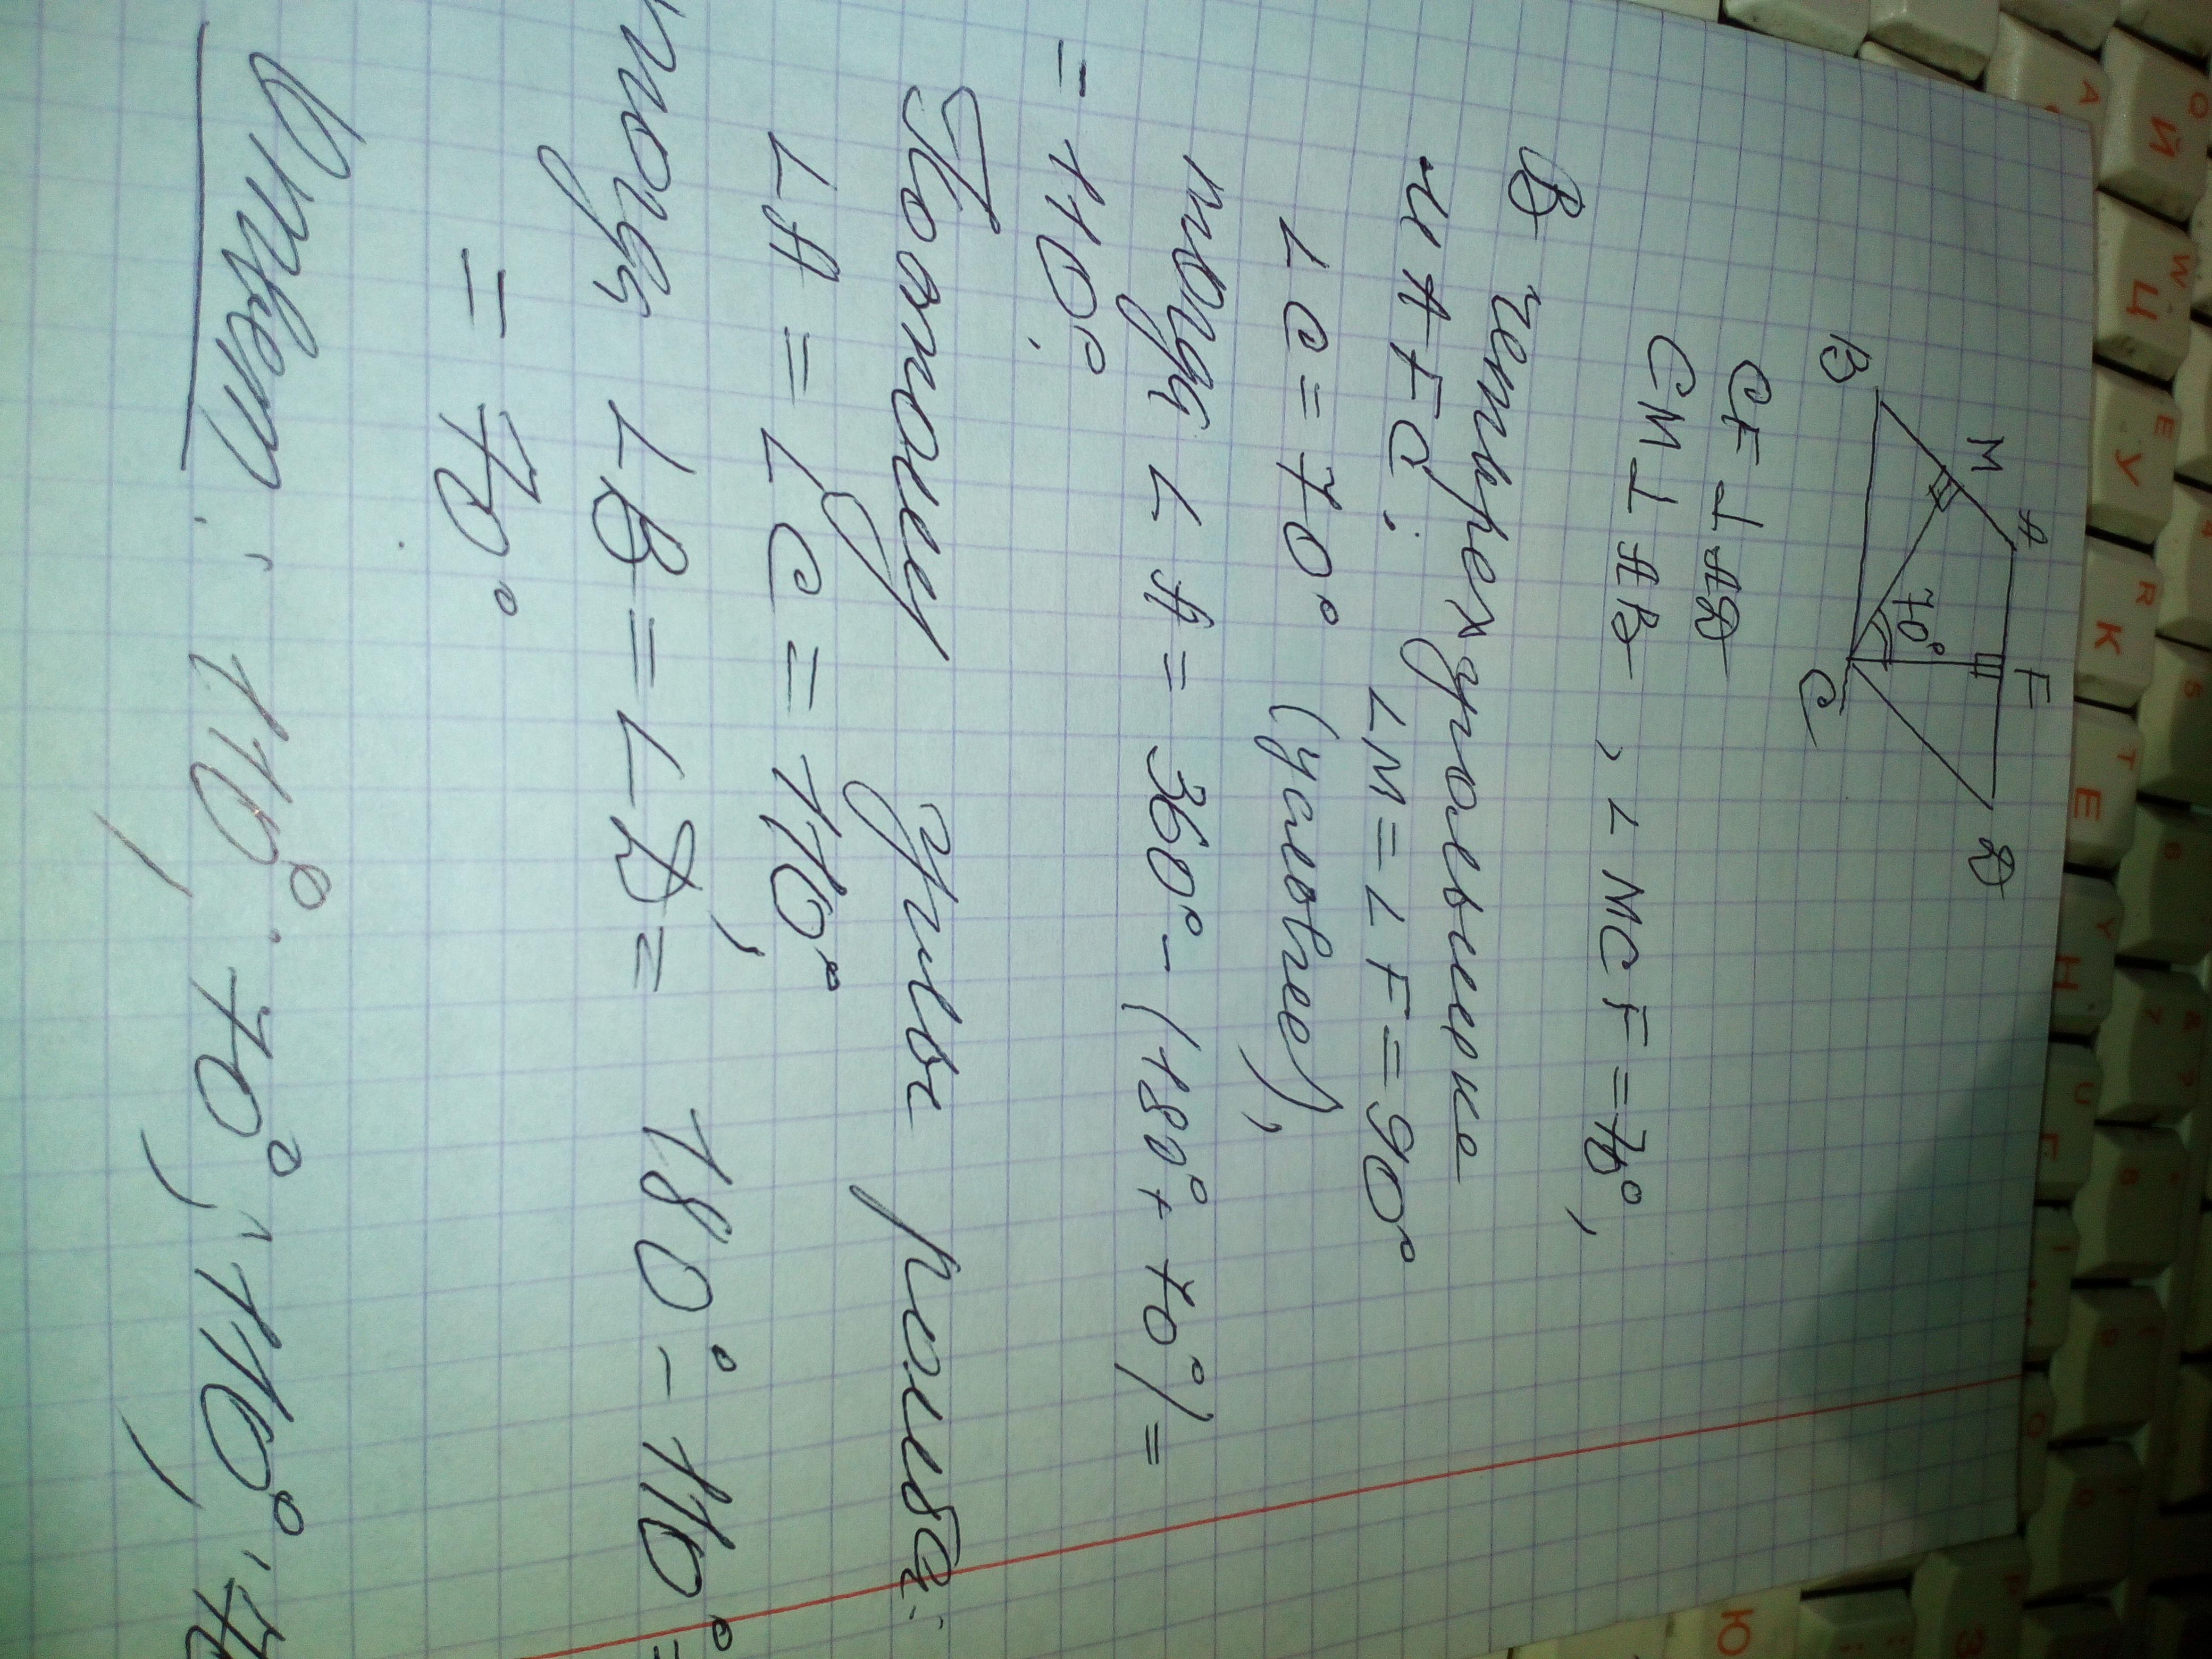 B M A F D
70°
C
CF ⊥ AD
CM ⊥ AB, ∠MCF = 70°,
В четырехугольнике
MAFC: ∠M = ∠F = 90°
∠C = 70° (условие),
тогда ∠A = 360° - (180° + 70°) =
= 110°.
Поэтому углы ромба:
∠A = ∠C = 110°,
тогда ∠B = ∠D = 180° - 110° =
= 70°
Ответ: 110°, 70°, 110°, 70